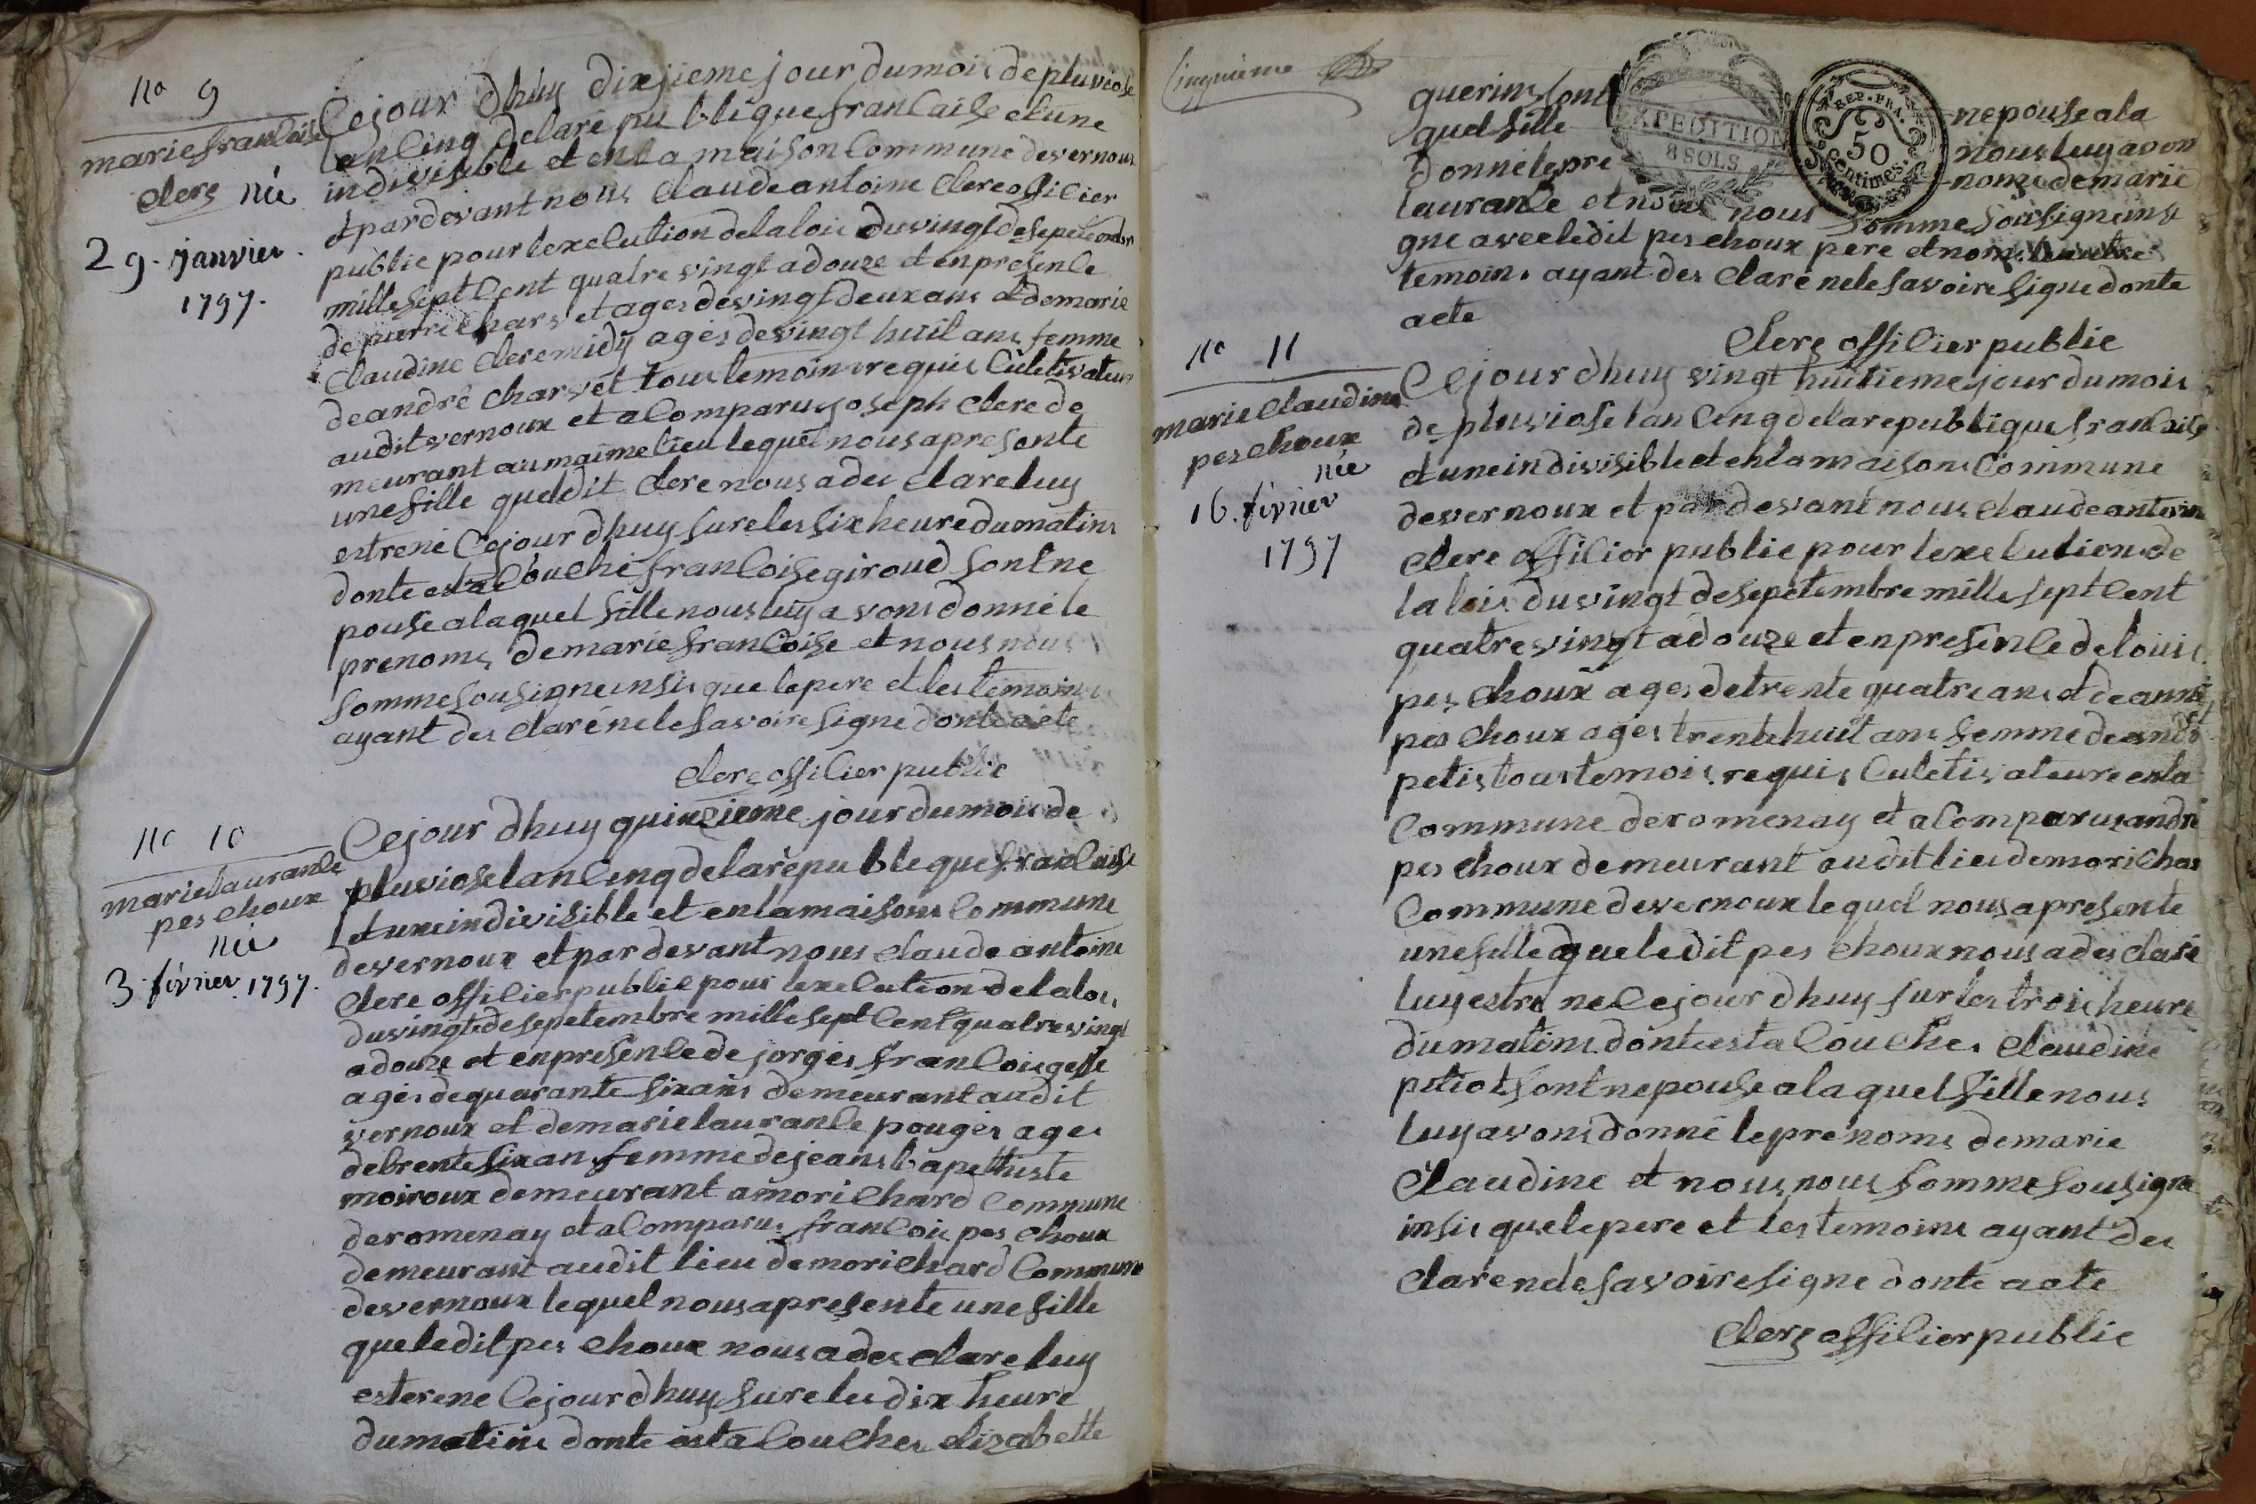 no 9
marie francoise
clerc née
29. janvier.
1797.
Cejour dhuy dixjieme jour dumois depluviose
lan cinq delare publique francaise etune
indivisible et enla maison Commune devernoux
et pardevant nous claude antoine clerc officier
public pour lexecution delaloic duvingt desepetembre
mille sept cent quatre vingt adouze et enpresence
depierre charvet ages devingt deux ans et demarie
claudine clere midy ages devingt huit ans femme
deandré charvet tous temoins requis Culetivateur
audit vernoux et acomparus joseph clere de
meurant au maime lieu lequel nous apresente
une fille queledit clere nous a des clare luy
estrené Cejour dhuy sureles six heure dumatins
donte esta couché francoise giroud sont ne
pouse alaquel fille nous luy avons donné le
prenoms demarie francoise et nous nous
somme sousigne insis que lepere et les temoins
ayant des claré nele savoire signe donte acte
clerc officier public
no 10
marie laurance
pes choux
née
3 février 1797.
Cejour dhuy quinzieme jour dumois de
pluviose lan cinq delarépubleque francaise
et une indivisible et enlamaisons Commune
devernoux et par devant nous claude antoine
clere officier public pour lexecution delalois
duvingt desepetembre mille sept cent quatre vingt
adouze et enpresence de jorges francois gesse
ages dequarante sixans demeurant audit
vernoux et demarie laurance pouges ages
detrente six an femme dejeans bapethiste
moiroux demeurant amorichard Commune
deromenay et acomparus francois pes choux
demeurant audit lieu demorichard Commune
devernoux lequel nous apresente une fille
queledit pes choux nous a des clare luy
esterene Cejour dhuy sureles dix heure
dumatins donte esta couches elizabette
Cinquieme
guerins sont nepouse ala
quel fille nous luy avon
donné lepre noms demarie
laurance et nous nous somme soirsigne insi
gne avec ledit pes choux pere et nom
temoins ayant des claré nele savoire signe donte
acte
clerc officier public
EXPEDITION
8 SOLS
REP. FRA.
50
centimes.
no 11
marie claudine
pes choux
née
16. février
1797
Cejour dhuy vingt huitieme jour dumois
de pluviose lan cinq delarepublique francaise
et une indivisible et enlamaisons Commune
devernoux et par devant nous claude antoine
clere officier public pour lexecution de
la lois duvingt desepetembre mille sept cent
quatre vingt adouze et enpresence delouis
pes choux ages detrente quatre ans et deanne
pes choux ages trente huit ans femme deandré
petis tous temois requis Culetivateure enla
Commune deromenay et acomparus andré
pes choux demeurant audit lieu demorichar
Commune devernoux lequel nous apresente
une fille queledit pes choux nous a des claré
luy estre ne Cejour dhuy sur les trois heure
dumatins donte esta couches claudine
petiot sont nepouse alaquel fille nous
luy avons donné leprenoms demarie
claudine et nous nous somme sousigne
insis quelepere et les temoins ayant des
claré nele savoire signe donte acte
clerc officier public